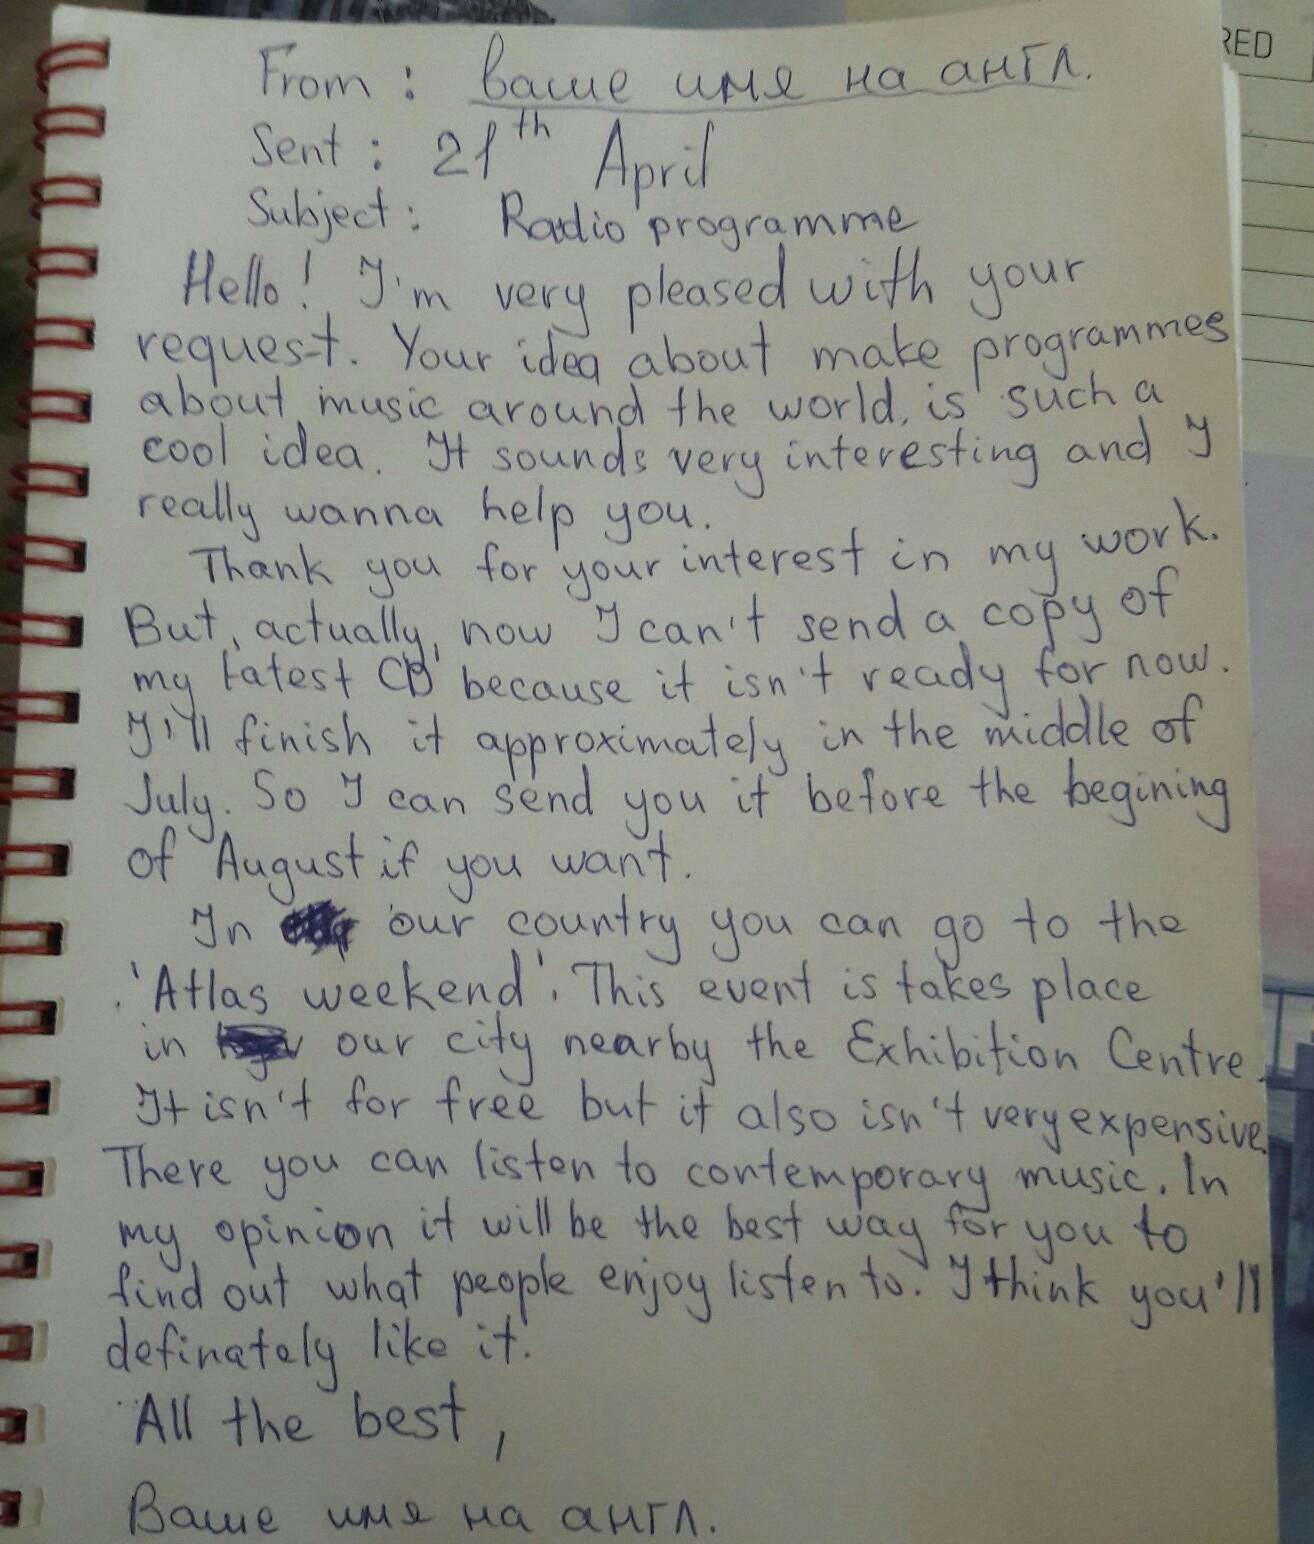 RED
From : ваше имя на англ.
Sent : 21th April
Subject : Radio programme
Hello! I'm very pleased with your
request. Your idea about make programmes
about music around the world, is such a
cool idea. It sounds very interesting and I
really wanna help you.
Thank you for your interest in my work.
But, actually, now I can't send a copy of
my latest CD because it isn't ready for now.
I'll finish it approximately in the middle of
July. So I can send you it before the begining
of August if you want.
In our country you can go to the
'Atlas weekend'. This event is takes place
in our city nearby the Exhibition Centre.
It isn't for free but it also isn't very expensive.
There you can listen to contemporary music. In
my opinion it will be the best way for you to
find out what people enjoy listen to. I think you'll
definately like it.
All the best,
Ваше имя на англ.